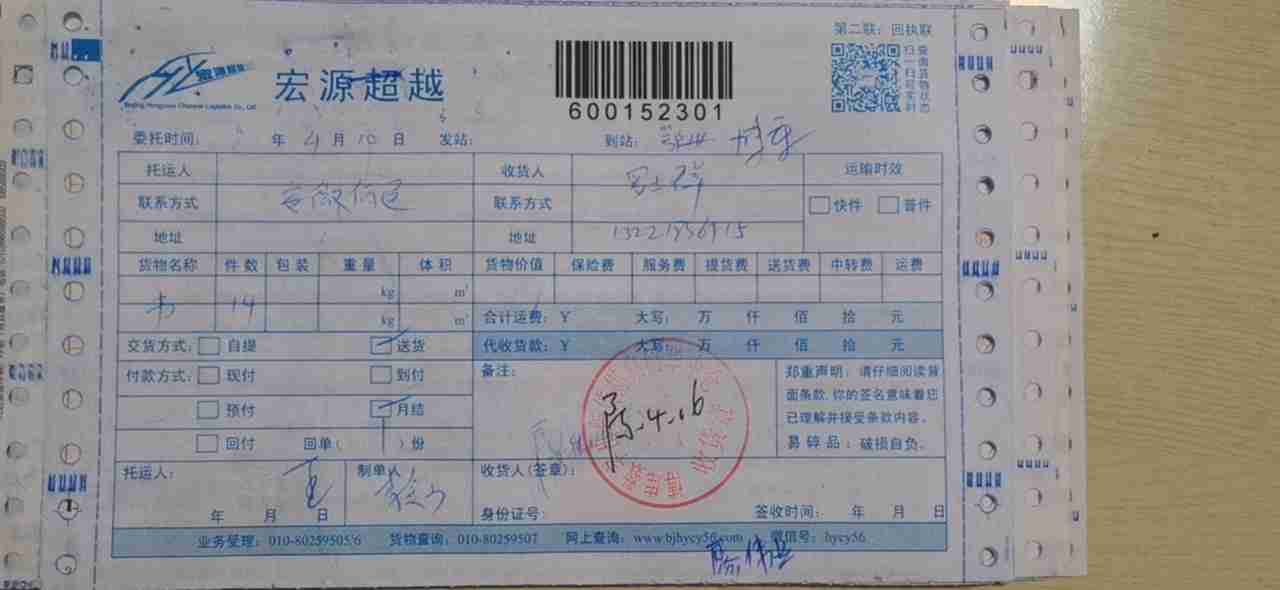 第二联：回执联
宏源超越
Beijing Hongyuan Chaoyue Logistics Co., Ltd
600152301
扫一扫可实时
查询货物状态
委托时间： 年 4月 10日 发站： 到站：
托运人 收货人 运输时效
联系方式 联系方式 快件 普件
地址 地址
货物名称 件数 包装 重量 体积 货物价值 保险费 服务费 提货费 送货费 中转费 运费
书 14 kg m³
kg m³ 合计运费：¥ 大写： 万 仟 佰 拾 元
交货方式： 自提 送货 代收货款：¥ 大写： 万 仟 佰 拾 元
付款方式： 现付 到付 备注：
预付 月结
回付 回单（ ）份
郑重声明：请仔细阅读背
面条款,你的签名意味着您
已理解并接受条款内容。
易碎品：破损自负。
4.16
收货章
托运人： 王 制单人 收货人(签章)：
年 月 日 身份证号： 签收时间： 年 月 日
业务受理：010-80259505/6 货物查询：010-80259507 网上查询：www.bjhycy56.com 微信号：hycy56